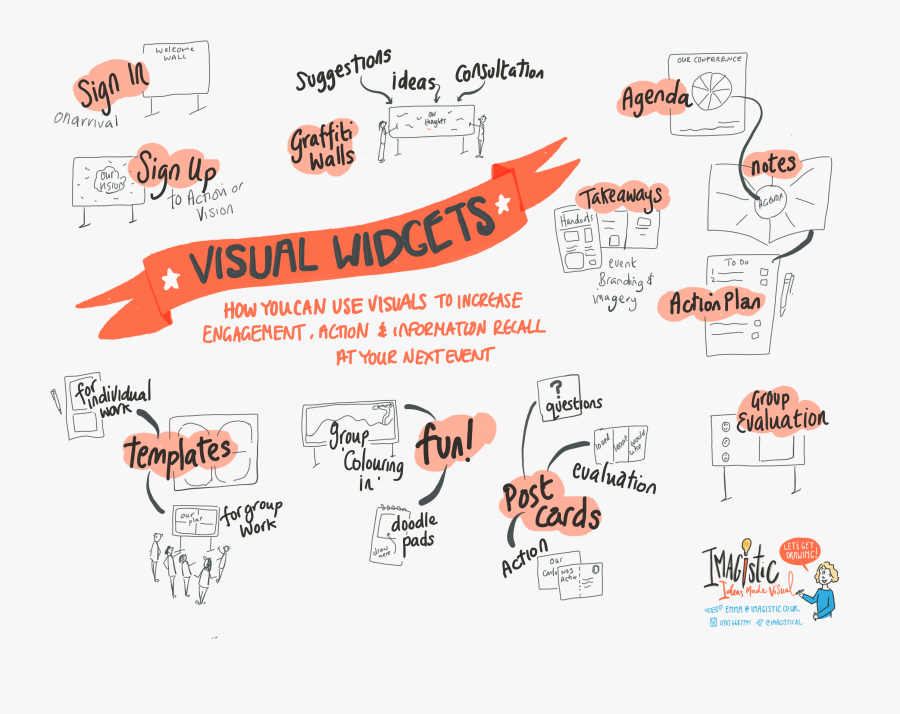 WELCOME
WALL
Sign In
On arrival
OUR
VISION
Sign Up
to Action or
Vision
Suggestions
ideas
Consultation
OUR
thoughts
Graffiti
Walls
OUR CONFERENCE
Agenda
notes
AGENDA
Takeaways
Handouts
event
Branding &
imagery
TO DO
1
2
Action Plan
VISUAL WIDGETS
HOW YOU CAN USE VISUALS TO INCREASE
ENGAGEMENT, ACTION & INFORMATION RECALL
AT YOUR NEXT EVENT
for
individual
work
templates
our
plan
for group
work
group
'Colouring
in'
fun!
doodle
pads
draw
here
?
questions
evaluation
Post
cards
Action
Our
NO.1
Action
Group
Evaluation
IMAGISTIC
Ideas Made Visual
LET'S GET
DRAWING!
EMMA @ IMAGISTIC.CO.UK
@IMAGISTICAL